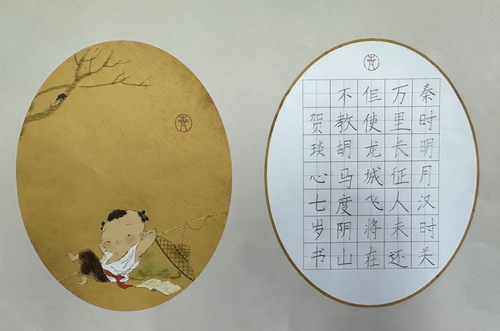 秦时明月汉时关
万里长征人未还
但使龙城飞将在
不教胡马度阴山
贺琰心七岁书